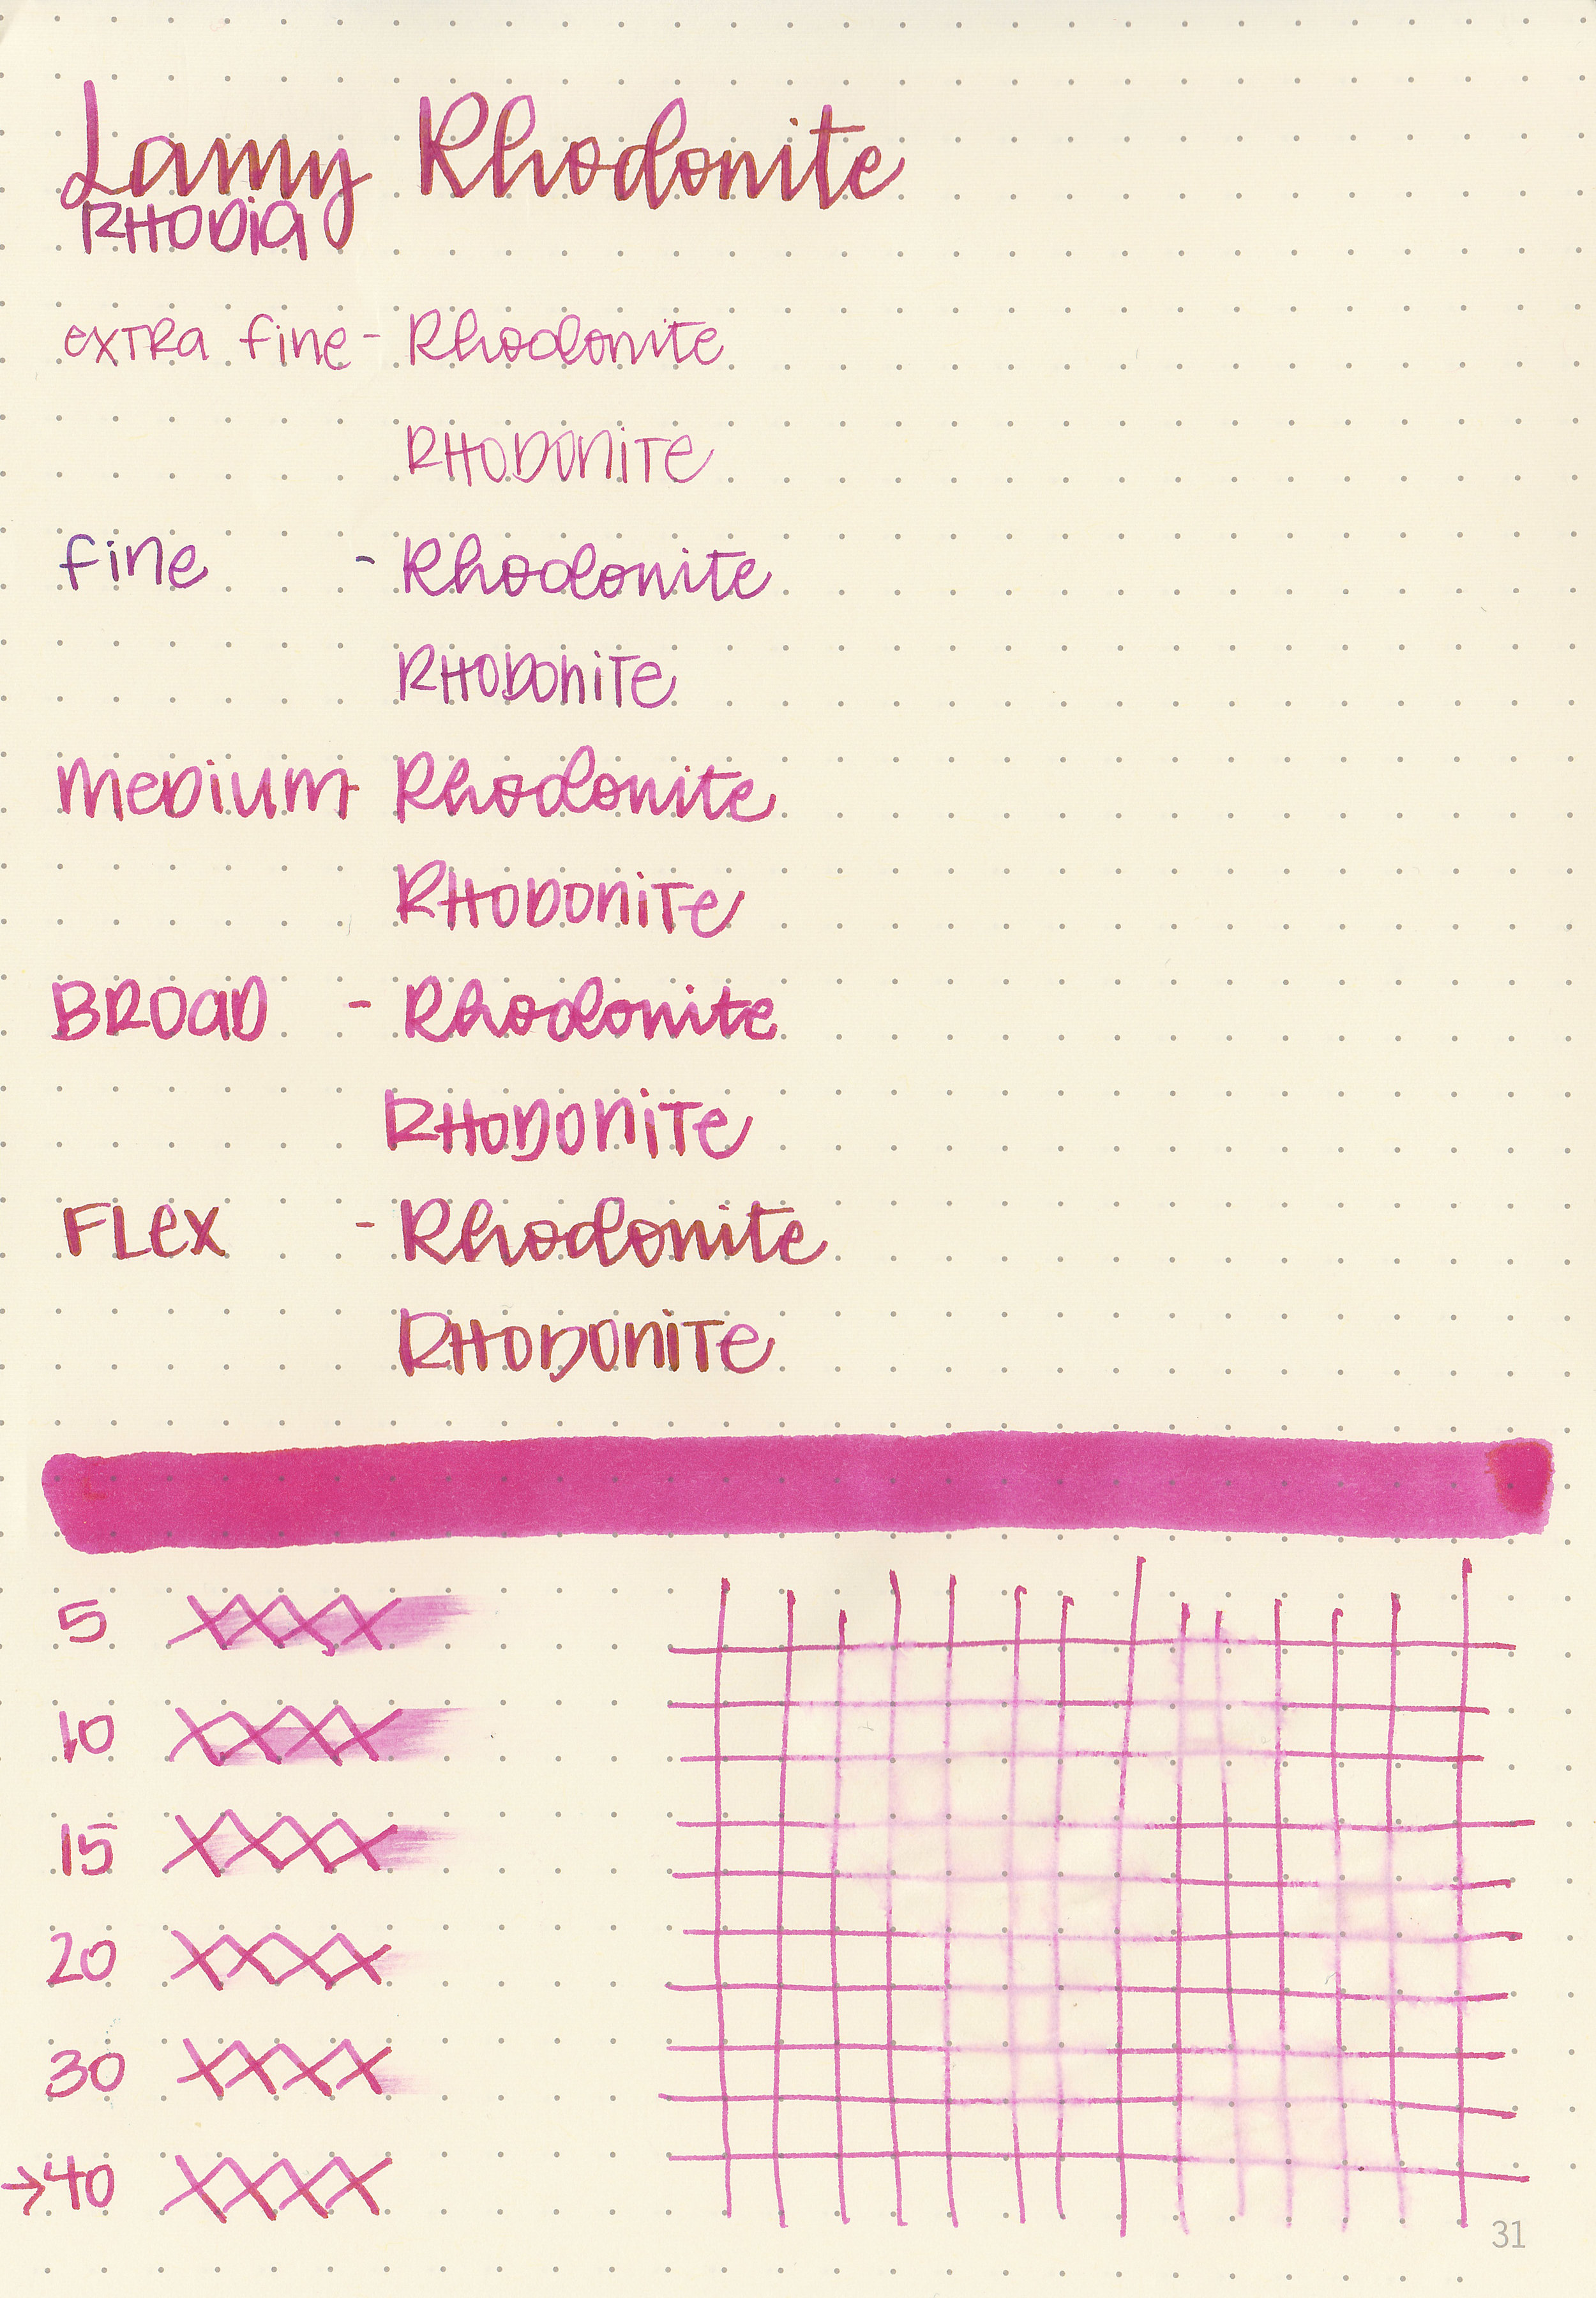 Lamy Rhodonite
RHODIA
extra fine - Rhodonite
RHODONITE
fine - Rhodonite
RHODONITE
Medium - Rhodonite
RHODONITE
BROAD - Rhodonite
RHODONITE
FLEX - Rhodonite
RHODONITE
5 XXXX
10 XXXX
15 XXXX
20 XXXX
30 XXXX
→40 XXXX
31